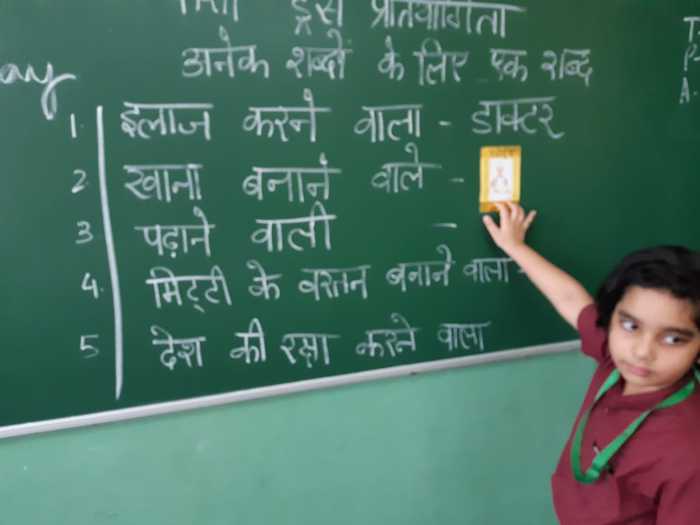 ड्रेस प्रतियोगिता
ay
अनेक शब्दों के लिए एक शब्द
1. इलाज करने वाला - डाक्टर
2. खाना बनाने वाले -
3 पढ़ाने वाली -
4. मिट्टी के बरतन बनाने वाला -
5 देश की रक्षा करने वाला
T
P-
A.